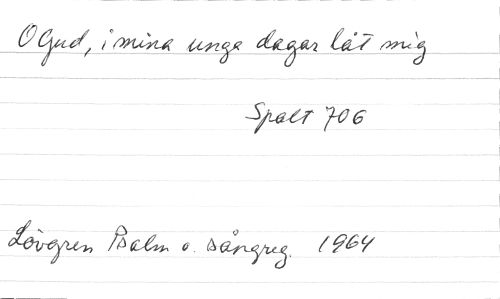 O Gud, i mina unga dagar låt mig
Spalt 706
Lövgren Psalm o. sångreg. 1964